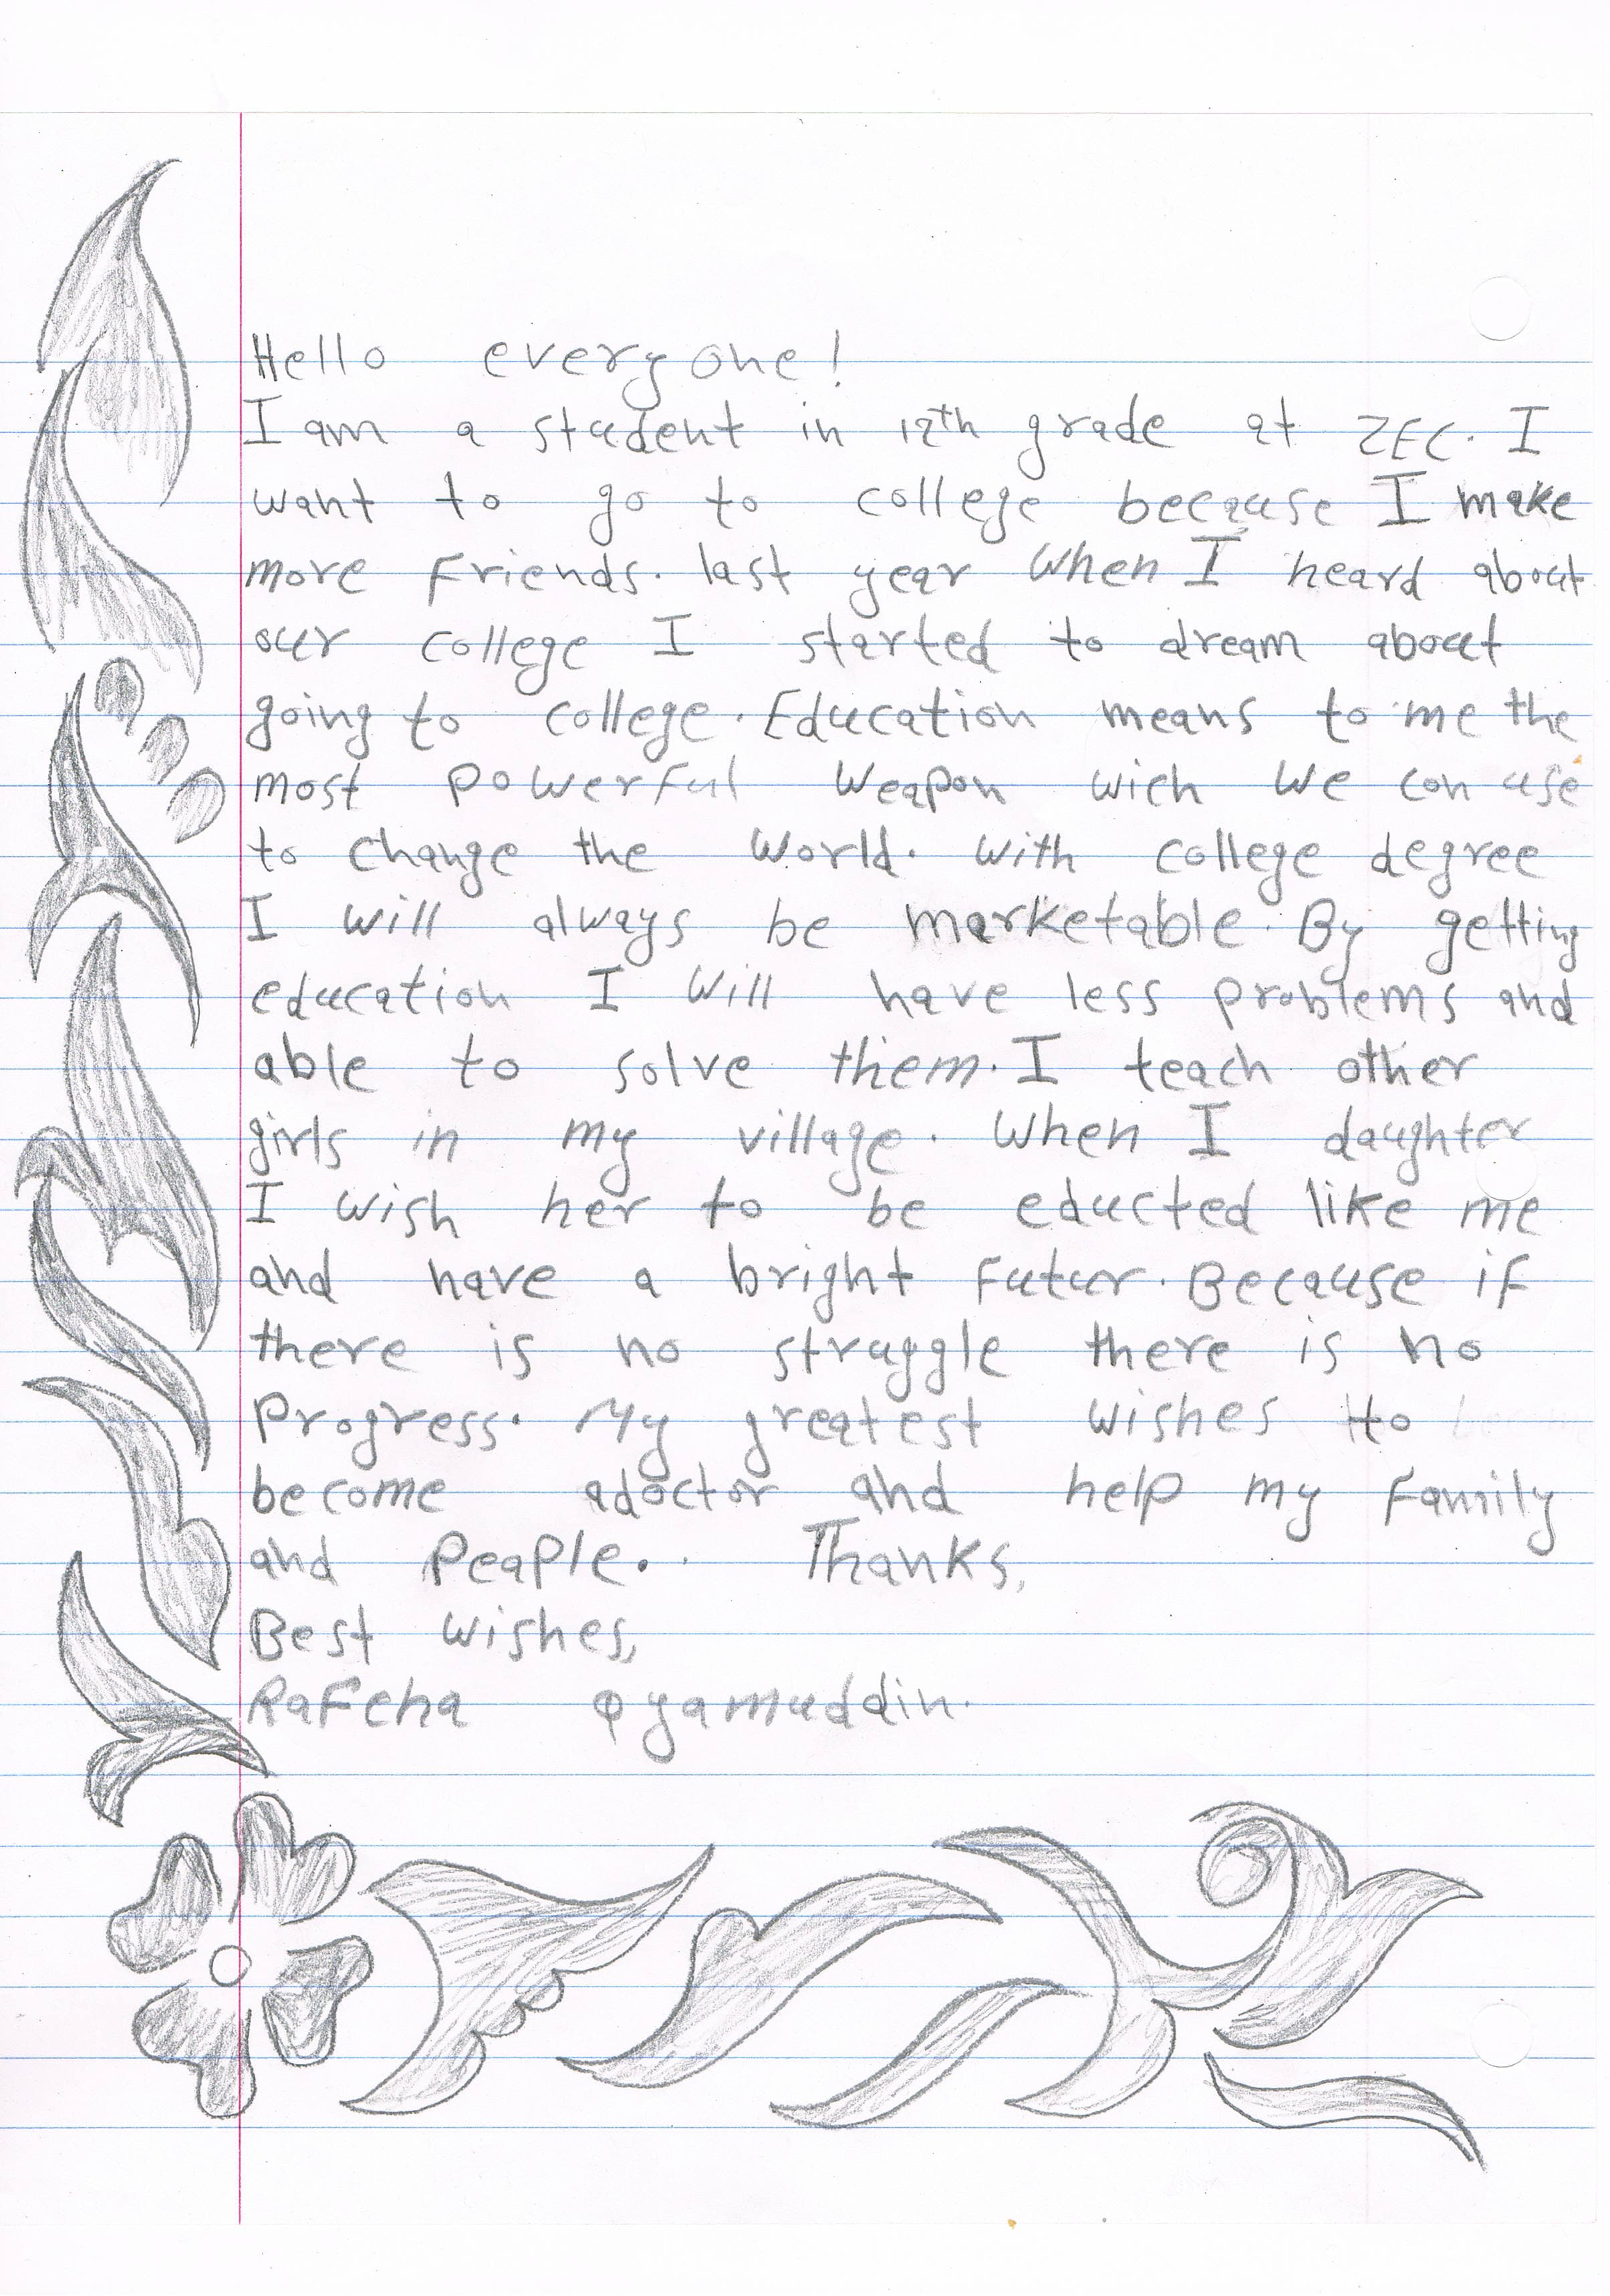 Hello everyone!
I am a student in 12th grade at ZEC. I
want to go to college because I make
more friends. last year when I heard about
our college I started to dream about
going to college. Education means to me the
most powerful weapon wich we con use
to change the world. with college degree
I will always be marketable. By getting
education I will have less problems and
able to solve them. I teach other
girls in my village. when I daughter
I wish her to be educted like me
and have a bright futur. Because if
there is no struggle there is no
progress. My greatest wishes to
become adoctor and help my family
and peaple. Thanks,
Best wishes,
Rafeha qyamuddin.